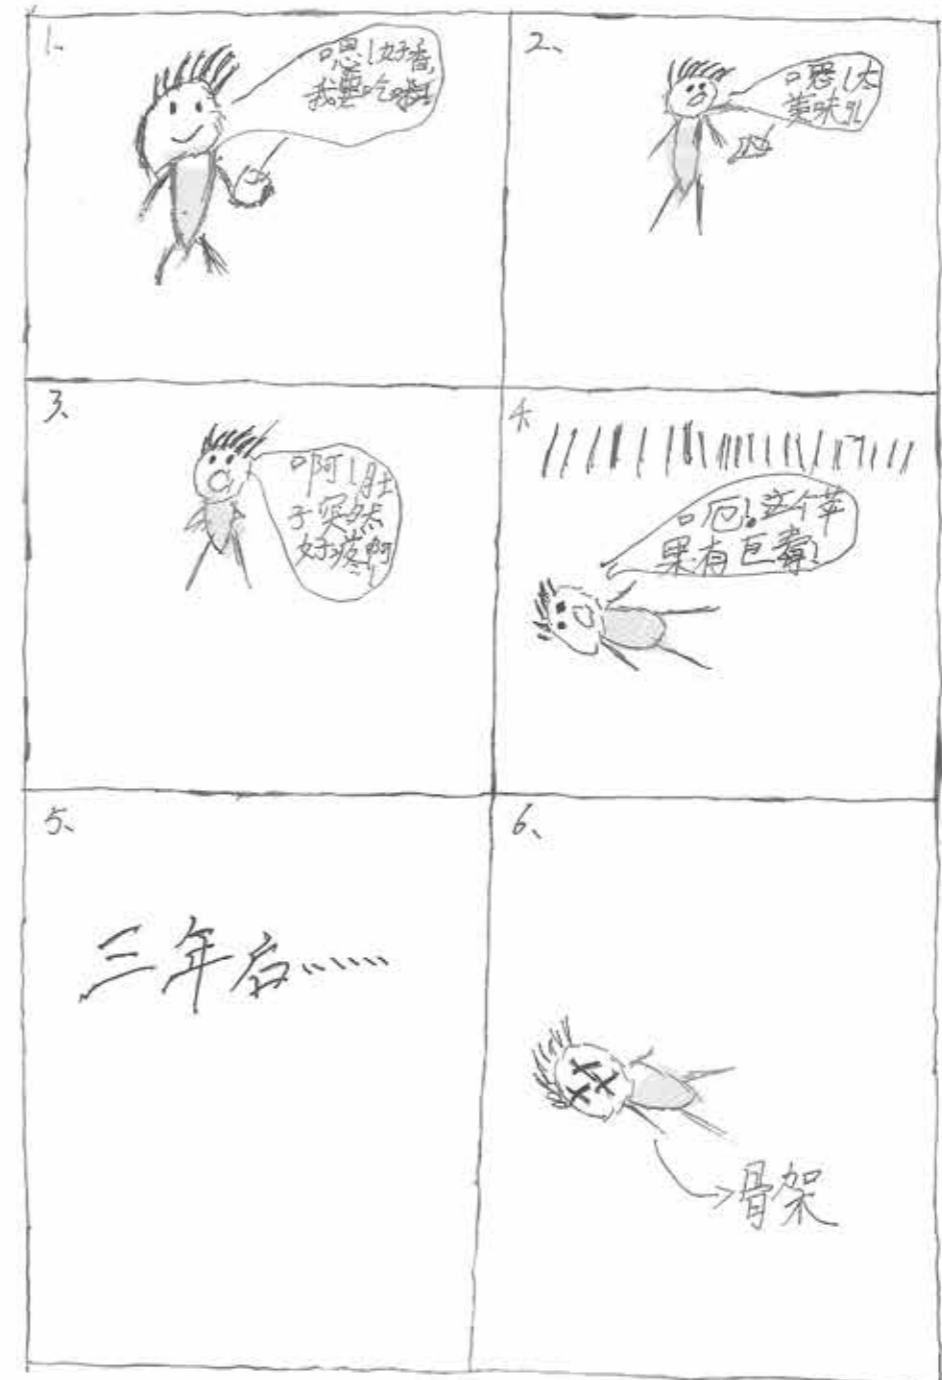 1、
嗯！好香，
我要吃喽！
2、
嗯！太
美味了
3、
啊！肚
子突然
好疼啊
4、
呃！这个苹
果有巨毒！
5、
三年后……
6、
骨架